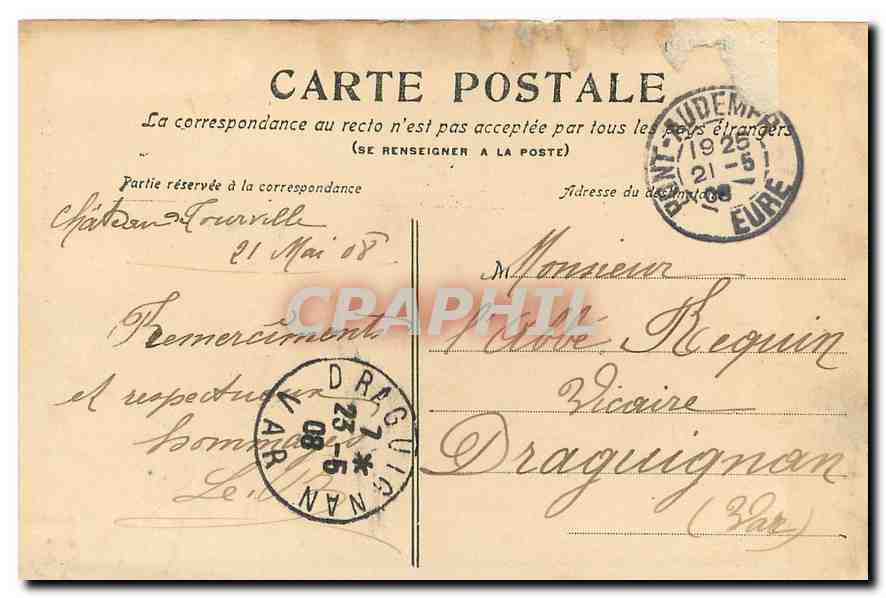 CARTE POSTALE
La correspondance au recto n'est pas acceptée par tous les pays étrangers
(SE RENSEIGNER A LA POSTE)
Partie réservée à la correspondance
Adresse du destinataire
PONT-AUDEMER
19 25
21 -5
08
EURE
Château Tourville
21 Mai 08
Remerciments
et respectueux
hommages
DRAGUIGNAN
7 *
23 -5
08
VAR
M Monsieur
l'Abbé Requin
Vicaire
Draguignan
(Var)
CPAPHIL